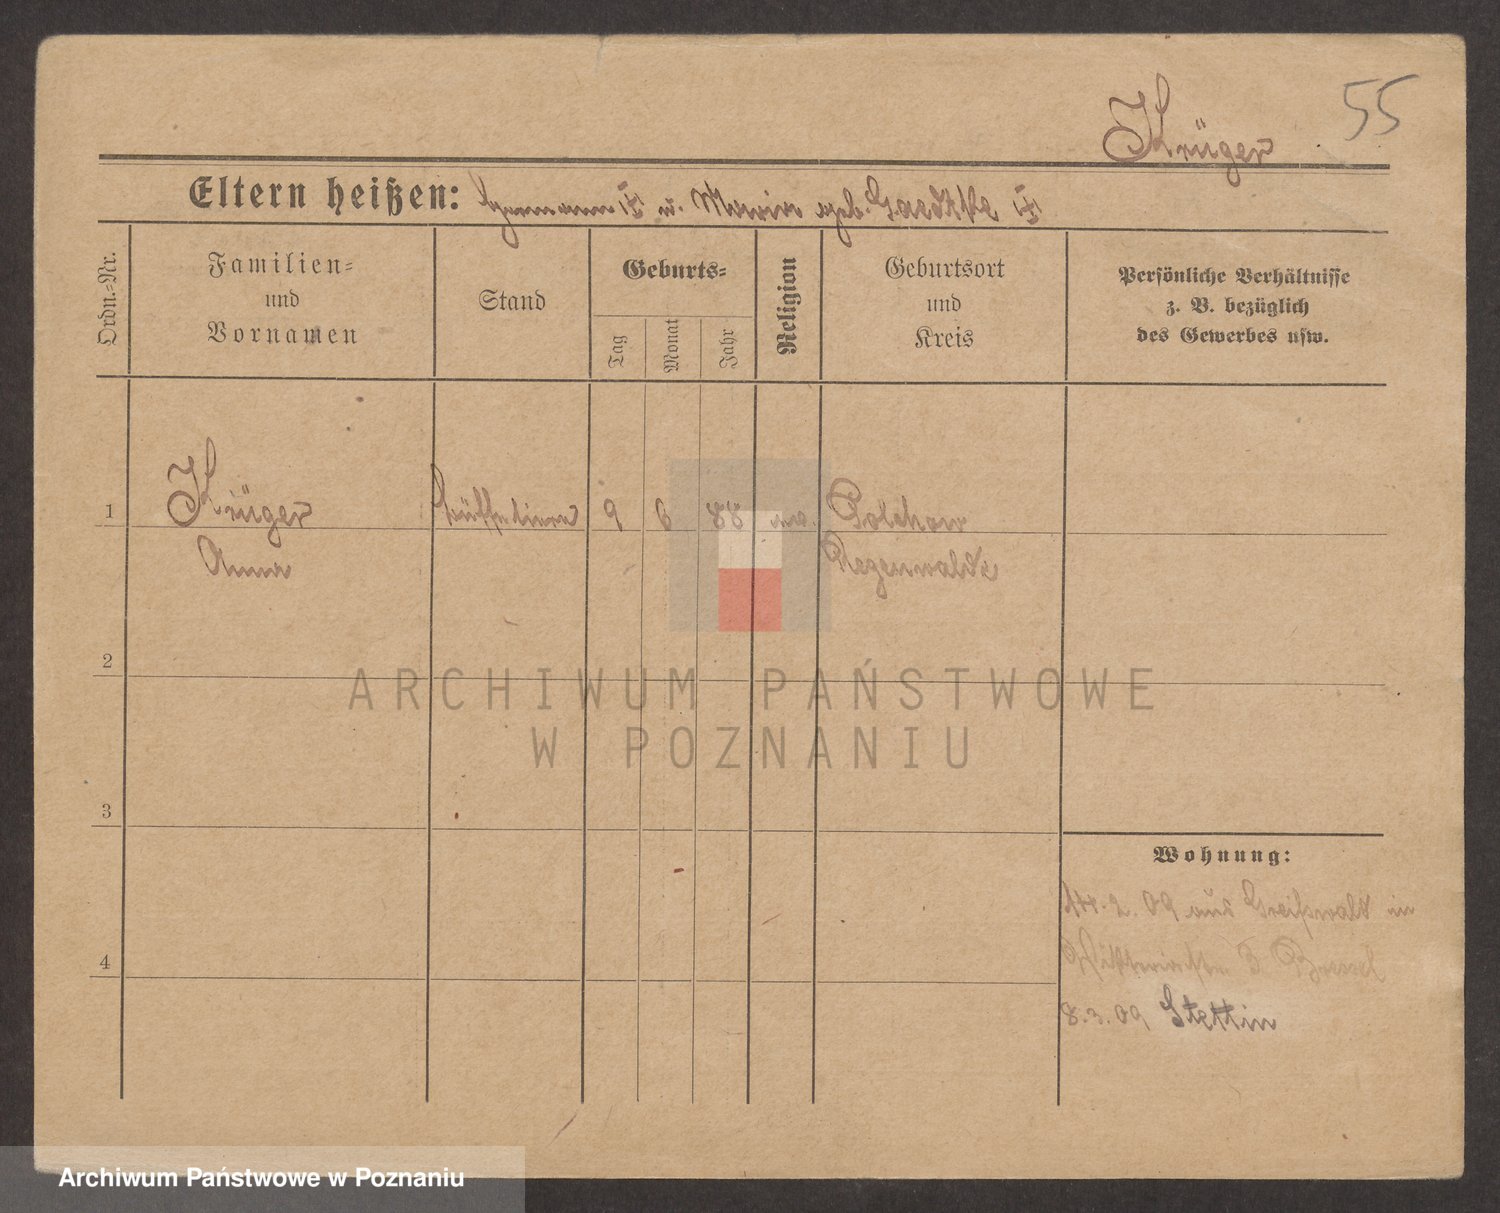 55
Krüger
Eltern heißen: Hermann u. Marie geb. Gaedtke
Ordn.-Nr.
Familien-
und
Vornamen
Stand
Geburts-
Tag
Monat
Jahr
Religion
Geburtsort
und
Kreis
Persönliche Verhältnisse
z. B. bezüglich
des Gewerbes usw.
1
Krüger
Anna
9 6 88 ev.
Polchow
Regenwalde
2
3
4
Wohnung:
14.2.09 aus Greifswald in
8.3.09 Stettin
ARCHIWUM PAŃSTWOWE
W POZNANIU
Archiwum Państwowe w Poznaniu